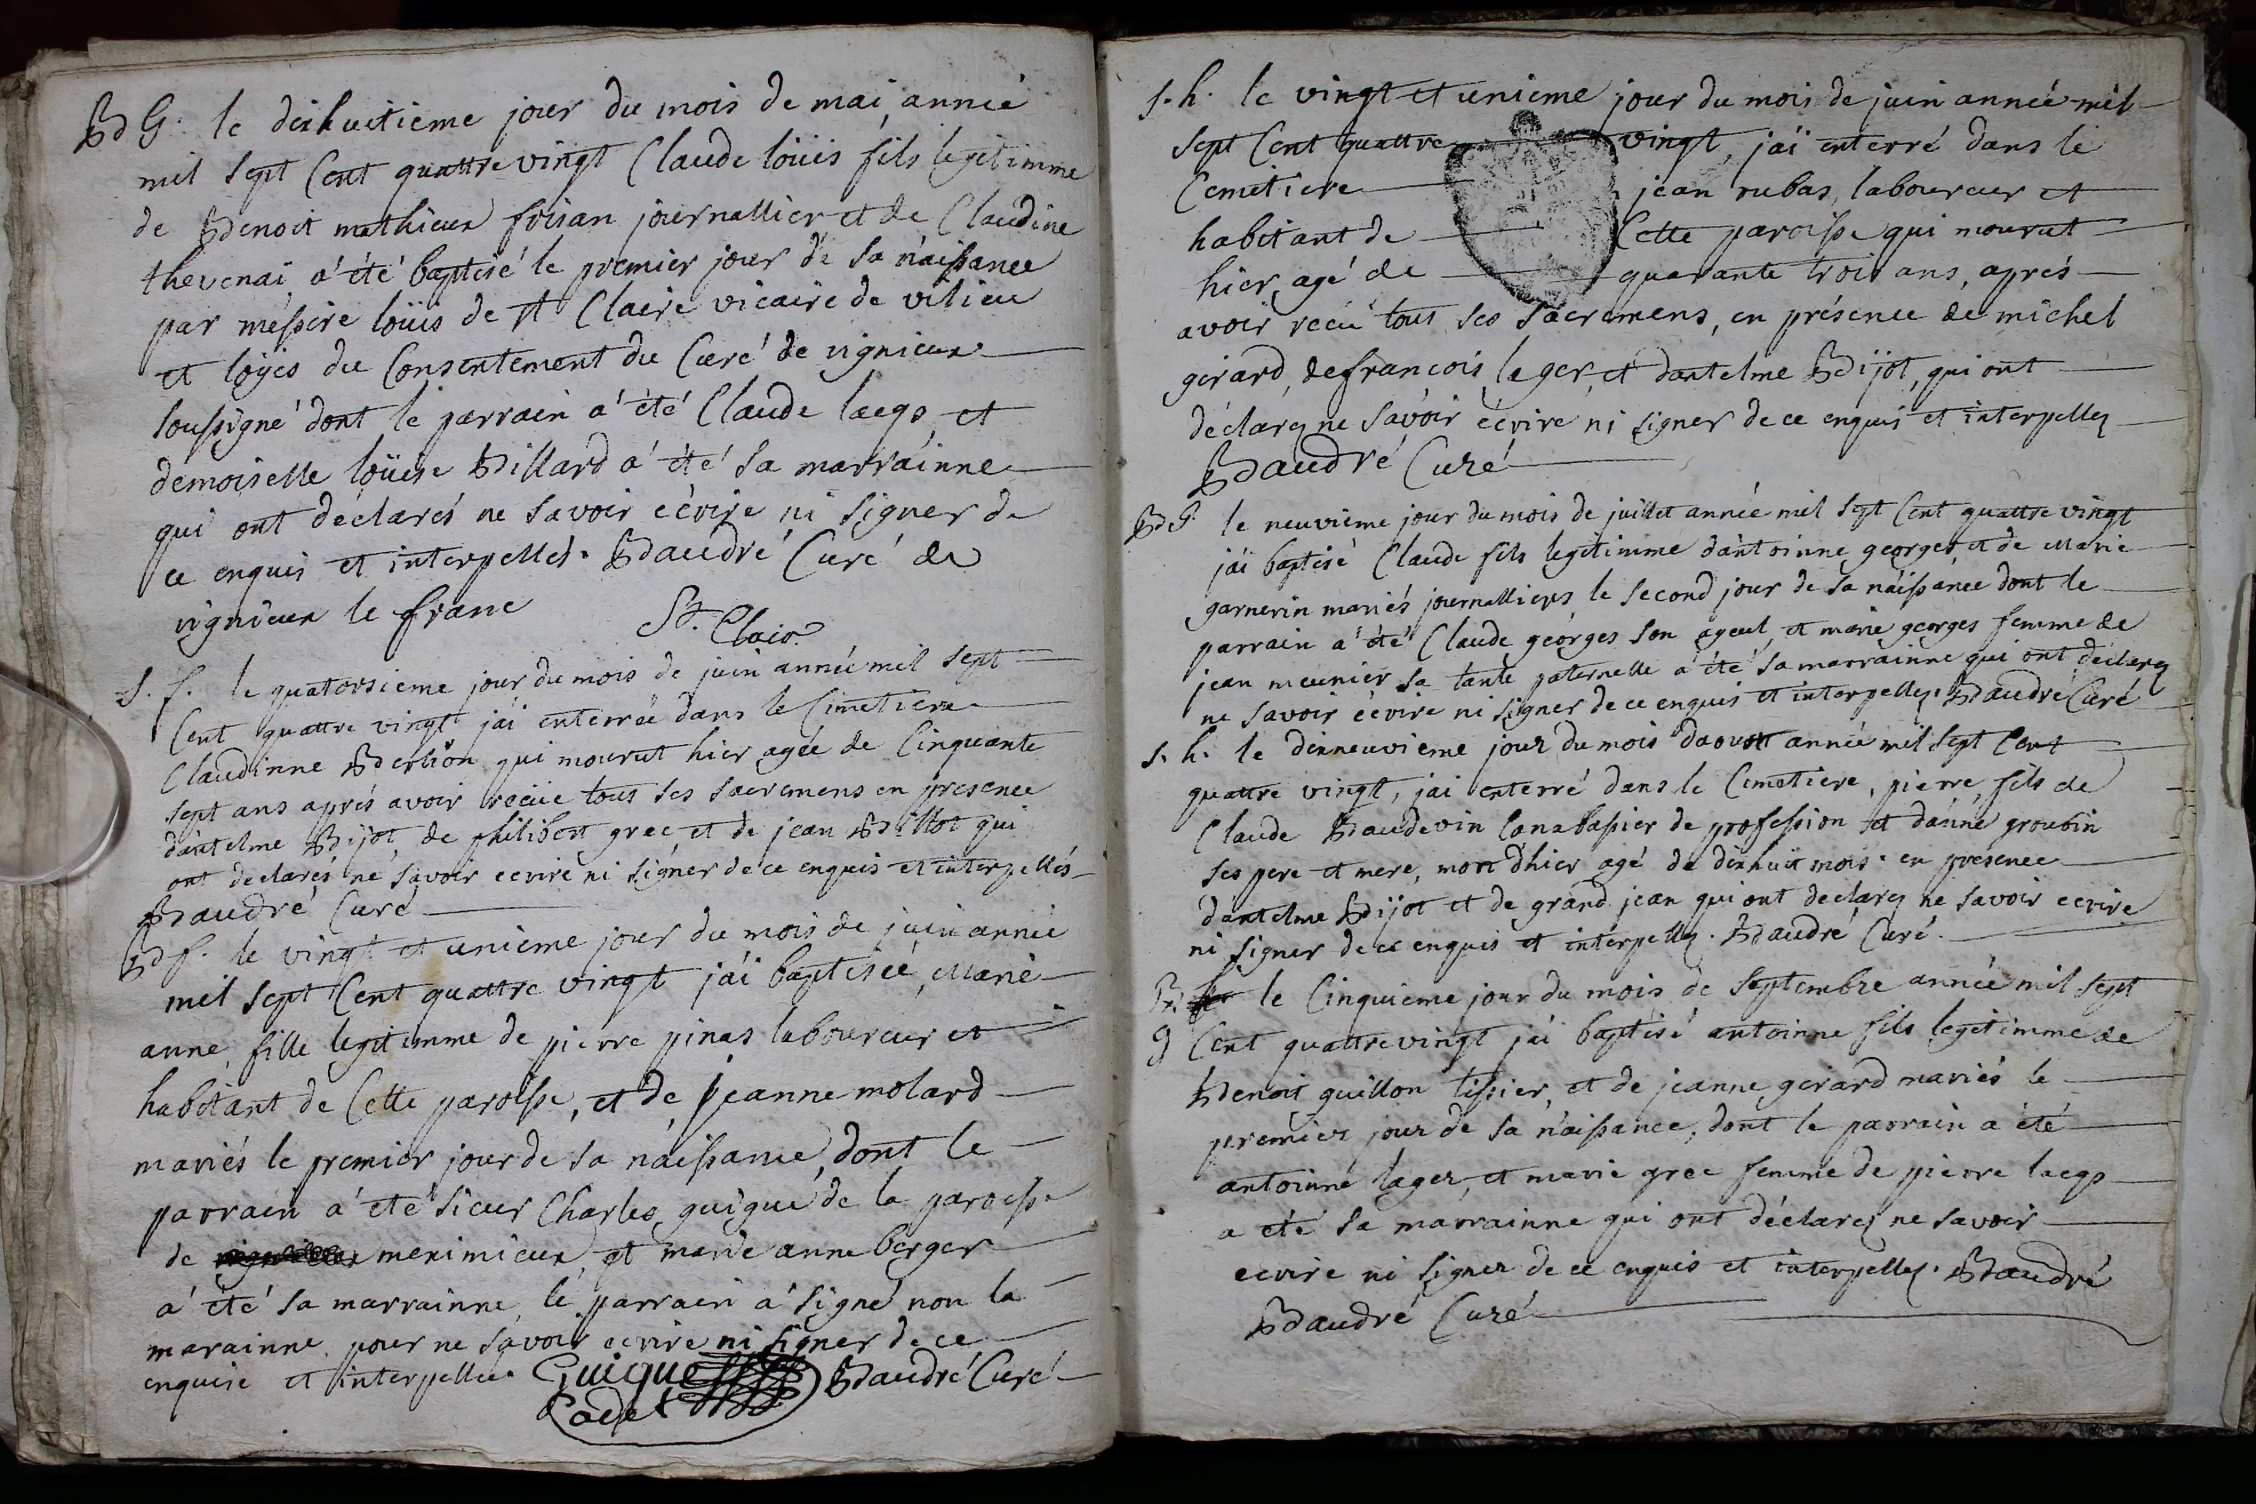 B G. le dixhuitieme jour du mois de mai, année
mil sept Cent quattre vingt Claude loüis fils legitimme
de Benoit mathieux frisan journallier et de Claudine
thevenai a été baptisé le premier jour de sa náissance
par méssire loüis de st Claire vicaire de vilieu
et loÿes du Consentement du Curé de vignieux
soussigné dont le parrain a été Claude lacgs et
demoiselle loüise Billard a été sa marráinne
qui ont déclarés ne savoir écrire ni signer de
ce enquis et interpellés. Baudré Curé de
vignieux le franc
St. Clair
s. f. le quatorsieme jour du mois de juin année mil sept
Cent quattre vingt j'ai enterrée dans le Cimetiere
Claudinne Berlion qui mourut hier agée de Cinquante
sept ans aprés avoir recüe tous ses sacremens en presence
dantelme Bijot, de philibert grec et de jean Billot qui
ont declarés ne savoir ecrire ni signer de ce enquis et interpellés
Baudré Curé
B f. le vingt et unieme jour du mois de juin année
mil sept Cent quattre vingt j'ai baptisée, Marie
anne, fille legitimme de pierre pinas laboureur et
habitant de Cette paroisse, et de jeanne molard
mariés le premier jour de sa náissance, dont le
parrain a été sieur Charles guigue de la paroisse
de meximieux, et marie anne berger
a été sa marrainne, le parrain a signé non la
marainne pour ne savoir ecrire ni signer de ce
enquise et interpellée. Guigue Baudré Curé
Cadet
s. h. le vingt et unieme jour du mois de juin année mil
sept Cent quattre vingt, j'ai enterré dans le
Cemetiere jean rubas, laboureur et
habitant de Cette paroisse qui mourut
hier, agé de quarante trois ans, aprés
avoir recü tous ses sácremens, en présence de michel
gerard, de francois leger, et dantelme Bijot, qui ont
déclarez ne savoir écrire ni signer de ce enquis et interpellez
Baudré Curé
B G. le neuviéme jour du mois de juillet année mil sept Cent quattre vingt
j'ai baptisé Claude fils legitimme d'antoinne georges et de Marie
garnerin mariés journalliers, le second jour de sa náissance dont le
parrain a été Claude georges son ayeul, et marie georges femme de
jean meunier sa tante paternelle a été sa marrainne qui ont declarez
ne savoir écrire ni signer de ce enquis et interpellez. Baudré Curé
s. h. le dixneuvieme jour du mois d'aoust année mil sept Cent
quattre vingt, j'ai enterré dans le Cemetiere, pierre, fils de
Claude Baudevin Canabassier de profession et d'anne groubin
ses pere et mere, mort d'hier, agé de dixhuit mois. en presence
dantelme Bijot et de grand jean qui ont declarez ne savoir ecrire
ni signer de ce enquis et intérpellez. Baudré Curé.
B. le Cinquieme jour du mois de septembre année mil sept
g Cent quattre vingt j'ai baptisé antoinne fils legitimme de
Benoit guillon tissier, et de jeanne gerard mariés le
premier jour de sa náissance, dont le parrain a été
antoinne lager, et marie grec femme de pierre lacgs
a été sa marrainne qui ont déclarez ne savoir
ecrire ni signer de ce enquis et interpellez. Baudré
Baudré Curé